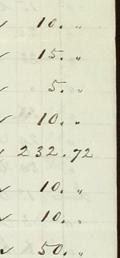 ✓ 10. "
✓ 15. "
✓ 5. "
✓ 10. "
✓ 232.72
✓ 10. "
✓ 10. "
✓ 50. "